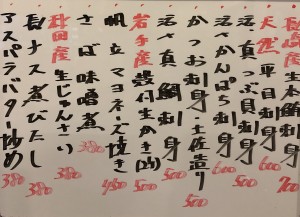 長崎産生本鮪刺身 700
天然平目刺身 600
活さかんぱち刺身 500
活〆真鯛刺身 600
かつお刺身・土佐造り 500
岩手産 殻付生かき(2ヶ) 500
帆立マヨネーズ焼き 480
さば味噌煮 380
秋田産 生じゅんさい 380
長ナス煮びたし 380
アスパラバター炒め 380